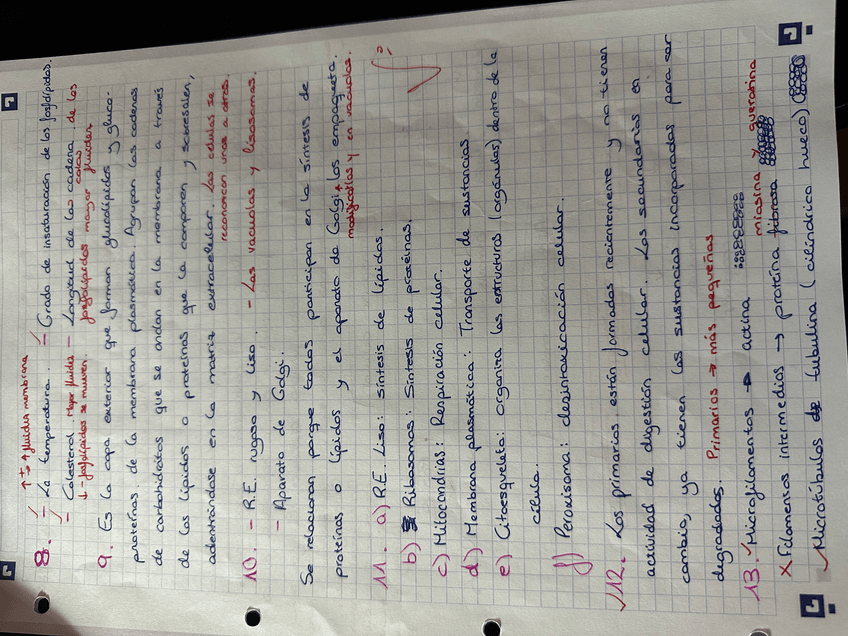 ↑ Tª ↑ fluidez membrana
8. - La temperatura. - Grado de insaturación de los fosfolípidos.
- Colesterol. Mayor fluidez - Longitud de las cadena. de los
↓ - fosfolípidos se mueven. fosfolípidos mayor fluidez colas
9. Es la capa exterior que forman glucolípidos y gluco-
proteínas de la membrana plasmática. Agrupan las cadenas
de carbohidratos que se andan en la membrana a través
de los lípidos o proteínas que la componen y sobresalen,
adentrándose en la matriz extracelular. Las células se
reconocen unas a otras.
10. - R.E. rugoso y liso. - Las vacuolas y lisosomas.
- Aparato de Golgi.
Se relacionan porque todos participan en la síntesis de
proteínas o lípidos y el aparato de Golgi los empaqueta.
modificarlas y en vacuolas.
11. a) R.E. Liso: síntesis de lípidos.
b) Ribosomas: Síntesis de proteínas.
c) Mitocondrias: Respiración celular.
d) Membrana plasmática: Transporte de sustancias
e) Citoesqueleto: organiza las estructuras (orgánulos) dentro de la
célula.
f) Peroxisoma: desintoxicación celular.
12. Los primarios están formados recientemente y no tienen
actividad de digestión celular. Los secundarios en
cambio, ya tienen las sustancias incorporadas para ser
degradados. Primarios → más pequeños
13. Microfilamentos → actina
miosina y queratina
Filamentos intermedios → proteína fibrosa
Microtúbulos de tubulina (cilíndrico hueco)